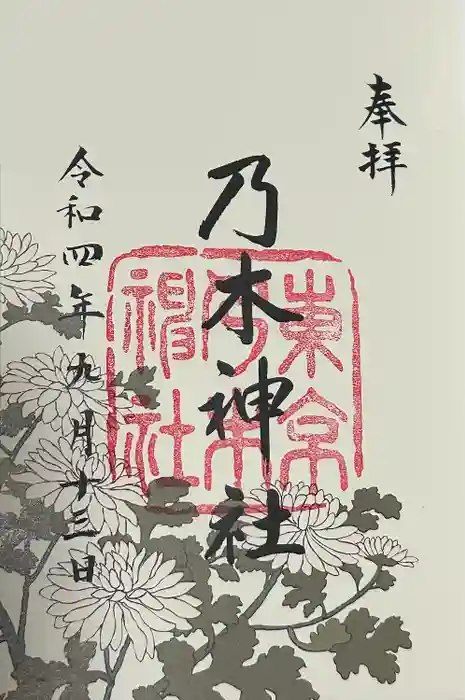 奉拝
東京
乃木
神社
乃木神社
令和四年九月十三日